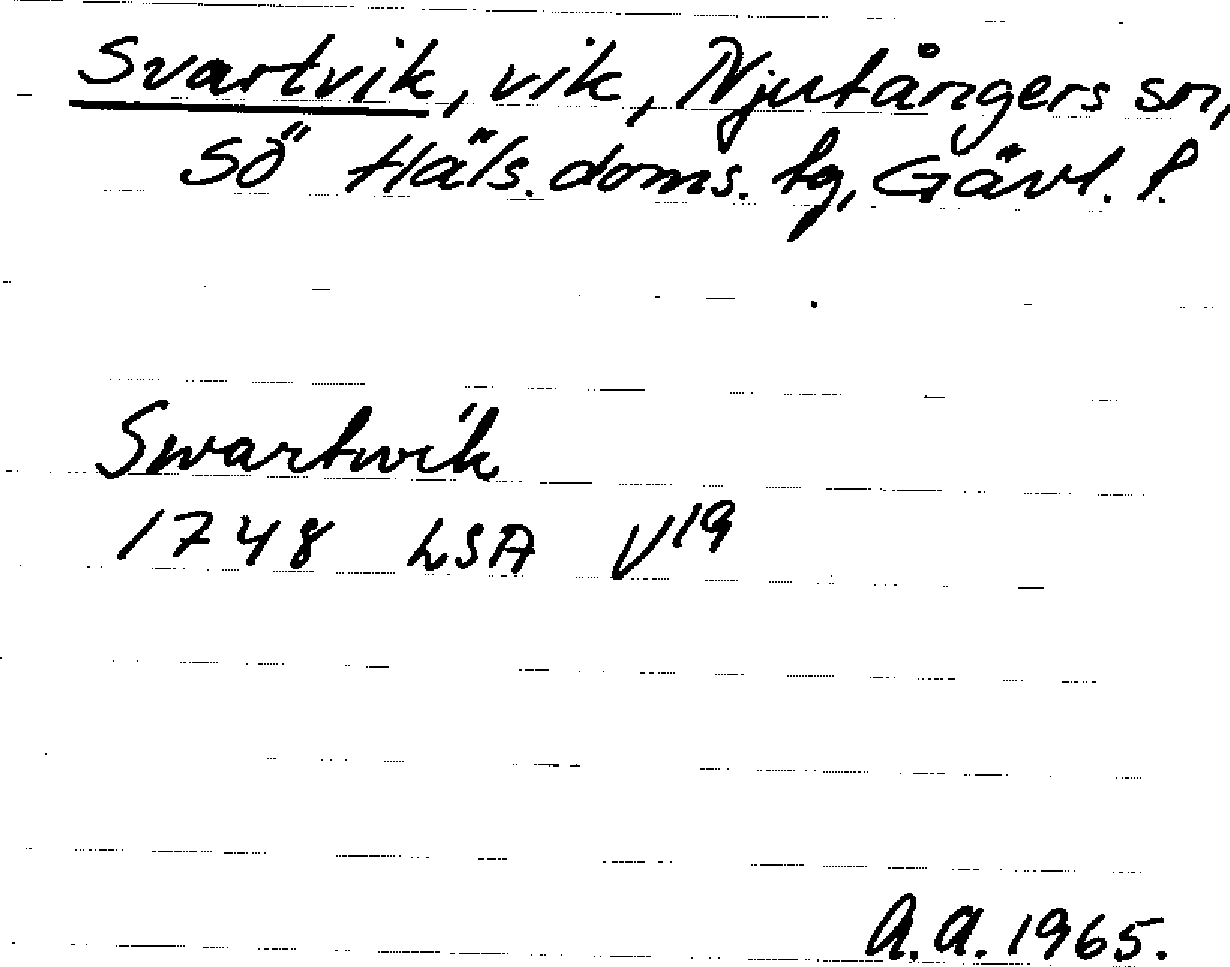 Svartvik, vik, Njutångers sn,
Sö Häls. doms. tg, Gävl. l.
Swartwik
1748 LSA V19
A.A. 1965.